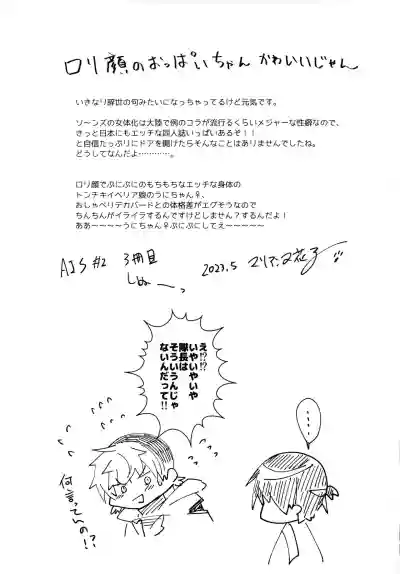 ロリ顔のおっぱいちゃん かわいいじゃん
いきなり辞世の句みたいになっちゃってるけど元気です。
ソーンズの女体化は大陸で例のコラが流行るくらいメジャーな性癖なので、
きっと日本にもエッチな同人誌いっぱいあるぞ！！
と自信たっぷりにドアを開けたらそんなことはありませんでしたね。
どうしてなんだよ…………。
ロリ顔でぷにぷにのもちもちなエッチな身体の
トンチキイベリア娘のうにちゃん♀、
おしゃべりデカバードとの体格差がエグそうなので
ちんちんがイライラするんですけどしません？するんだよ！
ああ～～～～うにちゃん♀ぷにぷにしてえ～～～～～
AJS #2 3冊目
2023.5
え!?!?
いやいやいや
隊長は
そういうんじゃ
ないんだって!!
‥‥
何言ってんの!?